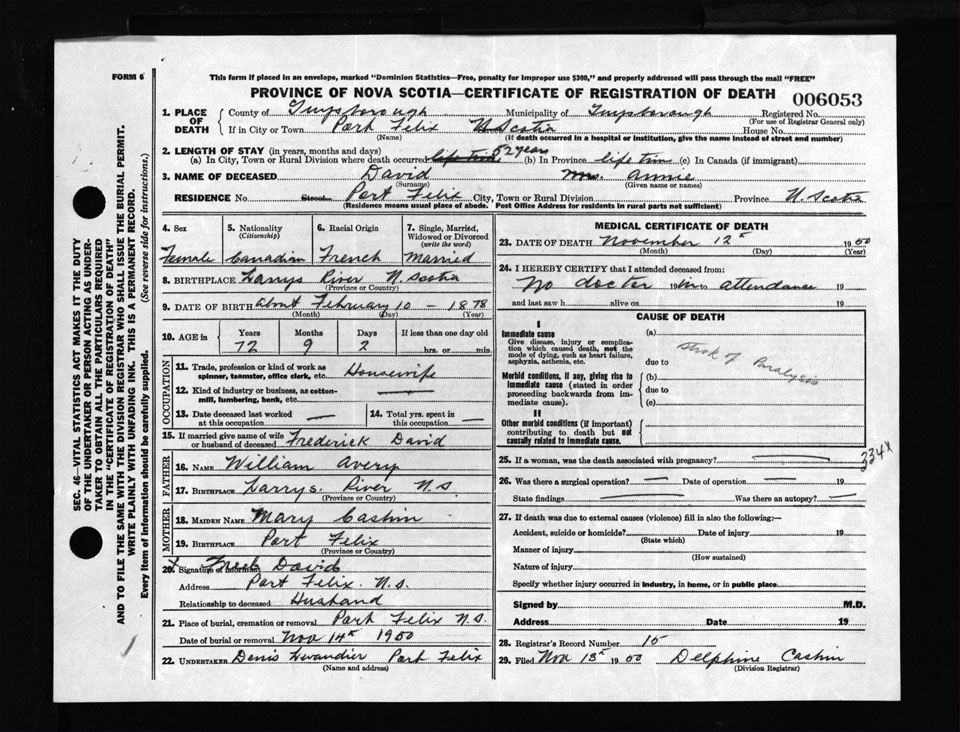 FORM 6
This form if placed in an envelope, marked "Dominion Statistics—Free, penalty for improper use $300," and properly addressed will pass through the mail "FREE"
PROVINCE OF NOVA SCOTIA—CERTIFICATE OF REGISTRATION OF DEATH
006053
1. PLACE OF DEATH
County of Guysborough Municipality of Guysborough Registered No.
(For use of Registrar General only)
If in City or Town Port Felix N. Scotia House No.
(Name) (If death occurred in a hospital or institution, give the name instead of street and number)
2. LENGTH OF STAY (in years, months and days)
(a) In City, Town or Rural Division where death occurred life time 52 years (b) In Province life time (c) In Canada (if immigrant)
3. NAME OF DECEASED David Mrs. Annie
(Surname) (Given name or names)
RESIDENCE No. Street Port Felix City, Town or Rural Division Province N. Scotia
(Residence means usual place of abode. Post Office Address for residents in rural parts not sufficient)
4. Sex Female
5. Nationality (Citizenship) Canadian
6. Racial Origin French
7. Single, Married, Widowed or Divorced (write the word) Married
8. BIRTHPLACE Larrys River N. Scotia
(Province or Country)
9. DATE OF BIRTH about February 10 - 1878
(Month) (Day) (Year)
10. AGE in Years Months Days If less than one day old
72 9 2 hrs. or min.
OCCUPATION
11. Trade, profession or kind of work as spinner, teamster, office clerk, etc. Housewife
12. Kind of industry or business, as cotton-mill, lumbering, bank, etc. —
13. Date deceased last worked at this occupation —
14. Total yrs. spent in this occupation —
15. If married give name of wife or husband of deceased Frederick David
FATHER
16. NAME William Avery
17. BIRTHPLACE Larrys River N.S.
(Province or Country)
MOTHER
18. MAIDEN NAME Mary Cashin
19. BIRTHPLACE Port Felix
(Province or Country)
20. Signature of informant X Fred David
Address Port Felix N.S.
Relationship to deceased Husband
21. Place of burial, cremation or removal Port Felix N.S.
Date of burial or removal Nov 14th 1950
22. UNDERTAKER Denis Levandier Port Felix
(Name and address)
MEDICAL CERTIFICATE OF DEATH
23. DATE OF DEATH November 12th 1950
(Month) (Day) (Year)
24. I HEREBY CERTIFY that I attended deceased from:
No doctor in attendance 19
and last saw h alive on 19
CAUSE OF DEATH
I
Immediate cause
Give disease, injury or complication which caused death, not the mode of dying, such as heart failure, asphyxia, asthenia, etc.
(a) Strok of Paralysis
due to
Morbid conditions, if any, giving rise to immediate cause (stated in order proceeding backwards from immediate cause).
(b)
due to
(c)
II
Other morbid conditions (if important) contributing to death but not causally related to immediate cause.
334X
25. If a woman, was the death associated with pregnancy? —
26. Was there a surgical operation? — Date of operation — 19
State findings — Was there an autopsy? —
27. If death was due to external causes (violence) fill in also the following:—
Accident, suicide or homicide? Date of injury 19
(State which)
Manner of injury
(How sustained)
Nature of injury
Specify whether injury occurred in industry, in home, or in public place
Signed by M.D.
Address Date 19
28. Registrar's Record Number 15
29. Filed Nov 13th 1950 Delphine Cashin
(Division Registrar)
SEC. 46—VITAL STATISTICS ACT MAKES IT THE DUTY
OF THE UNDERTAKER OR PERSON ACTING AS UNDER-
TAKER TO OBTAIN ALL THE PARTICULARS REQUIRED
IN THE "CERTIFICATE OF REGISTRATION OF DEATH"
AND TO FILE THE SAME WITH THE DIVISION REGISTRAR WHO SHALL ISSUE THE BURIAL PERMIT.
WRITE PLAINLY WITH UNFADING INK. THIS IS A PERMANENT RECORD.
Every item of information should be carefully supplied. (See reverse side for instructions.)